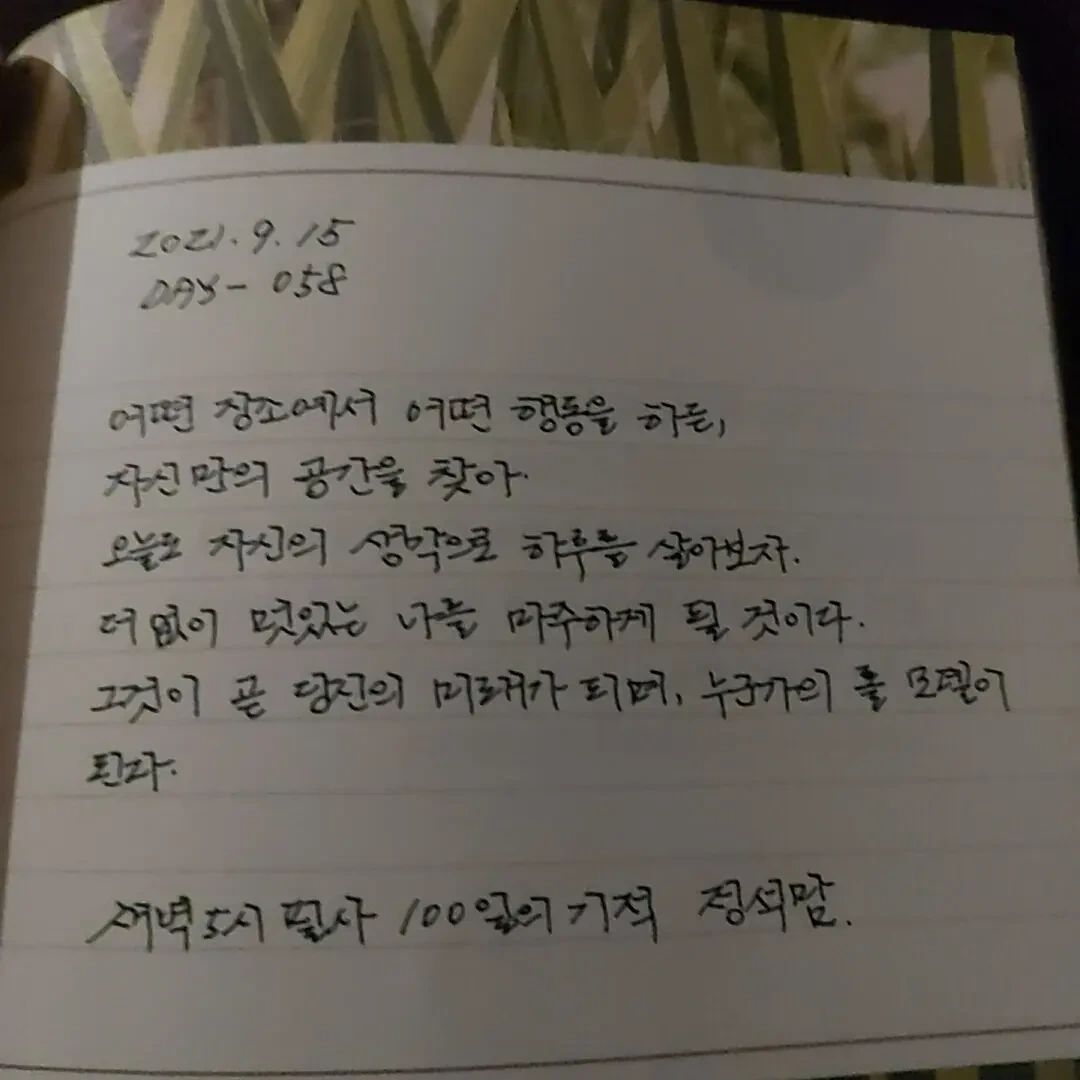 2021.9.15
DAY- 058
어떤 장소에서 어떤 행동을 하든,
자신만의 공간을 찾아.
오늘도 자신의 생각으로 하루를 살아보자.
더없이 멋있는 나를 마주하게 될 것이다.
그것이 곧 당신의 미래가 되며, 누군가의 롤 모델이
된다.
새벽5시 필사 100일의 기적 정석맘.